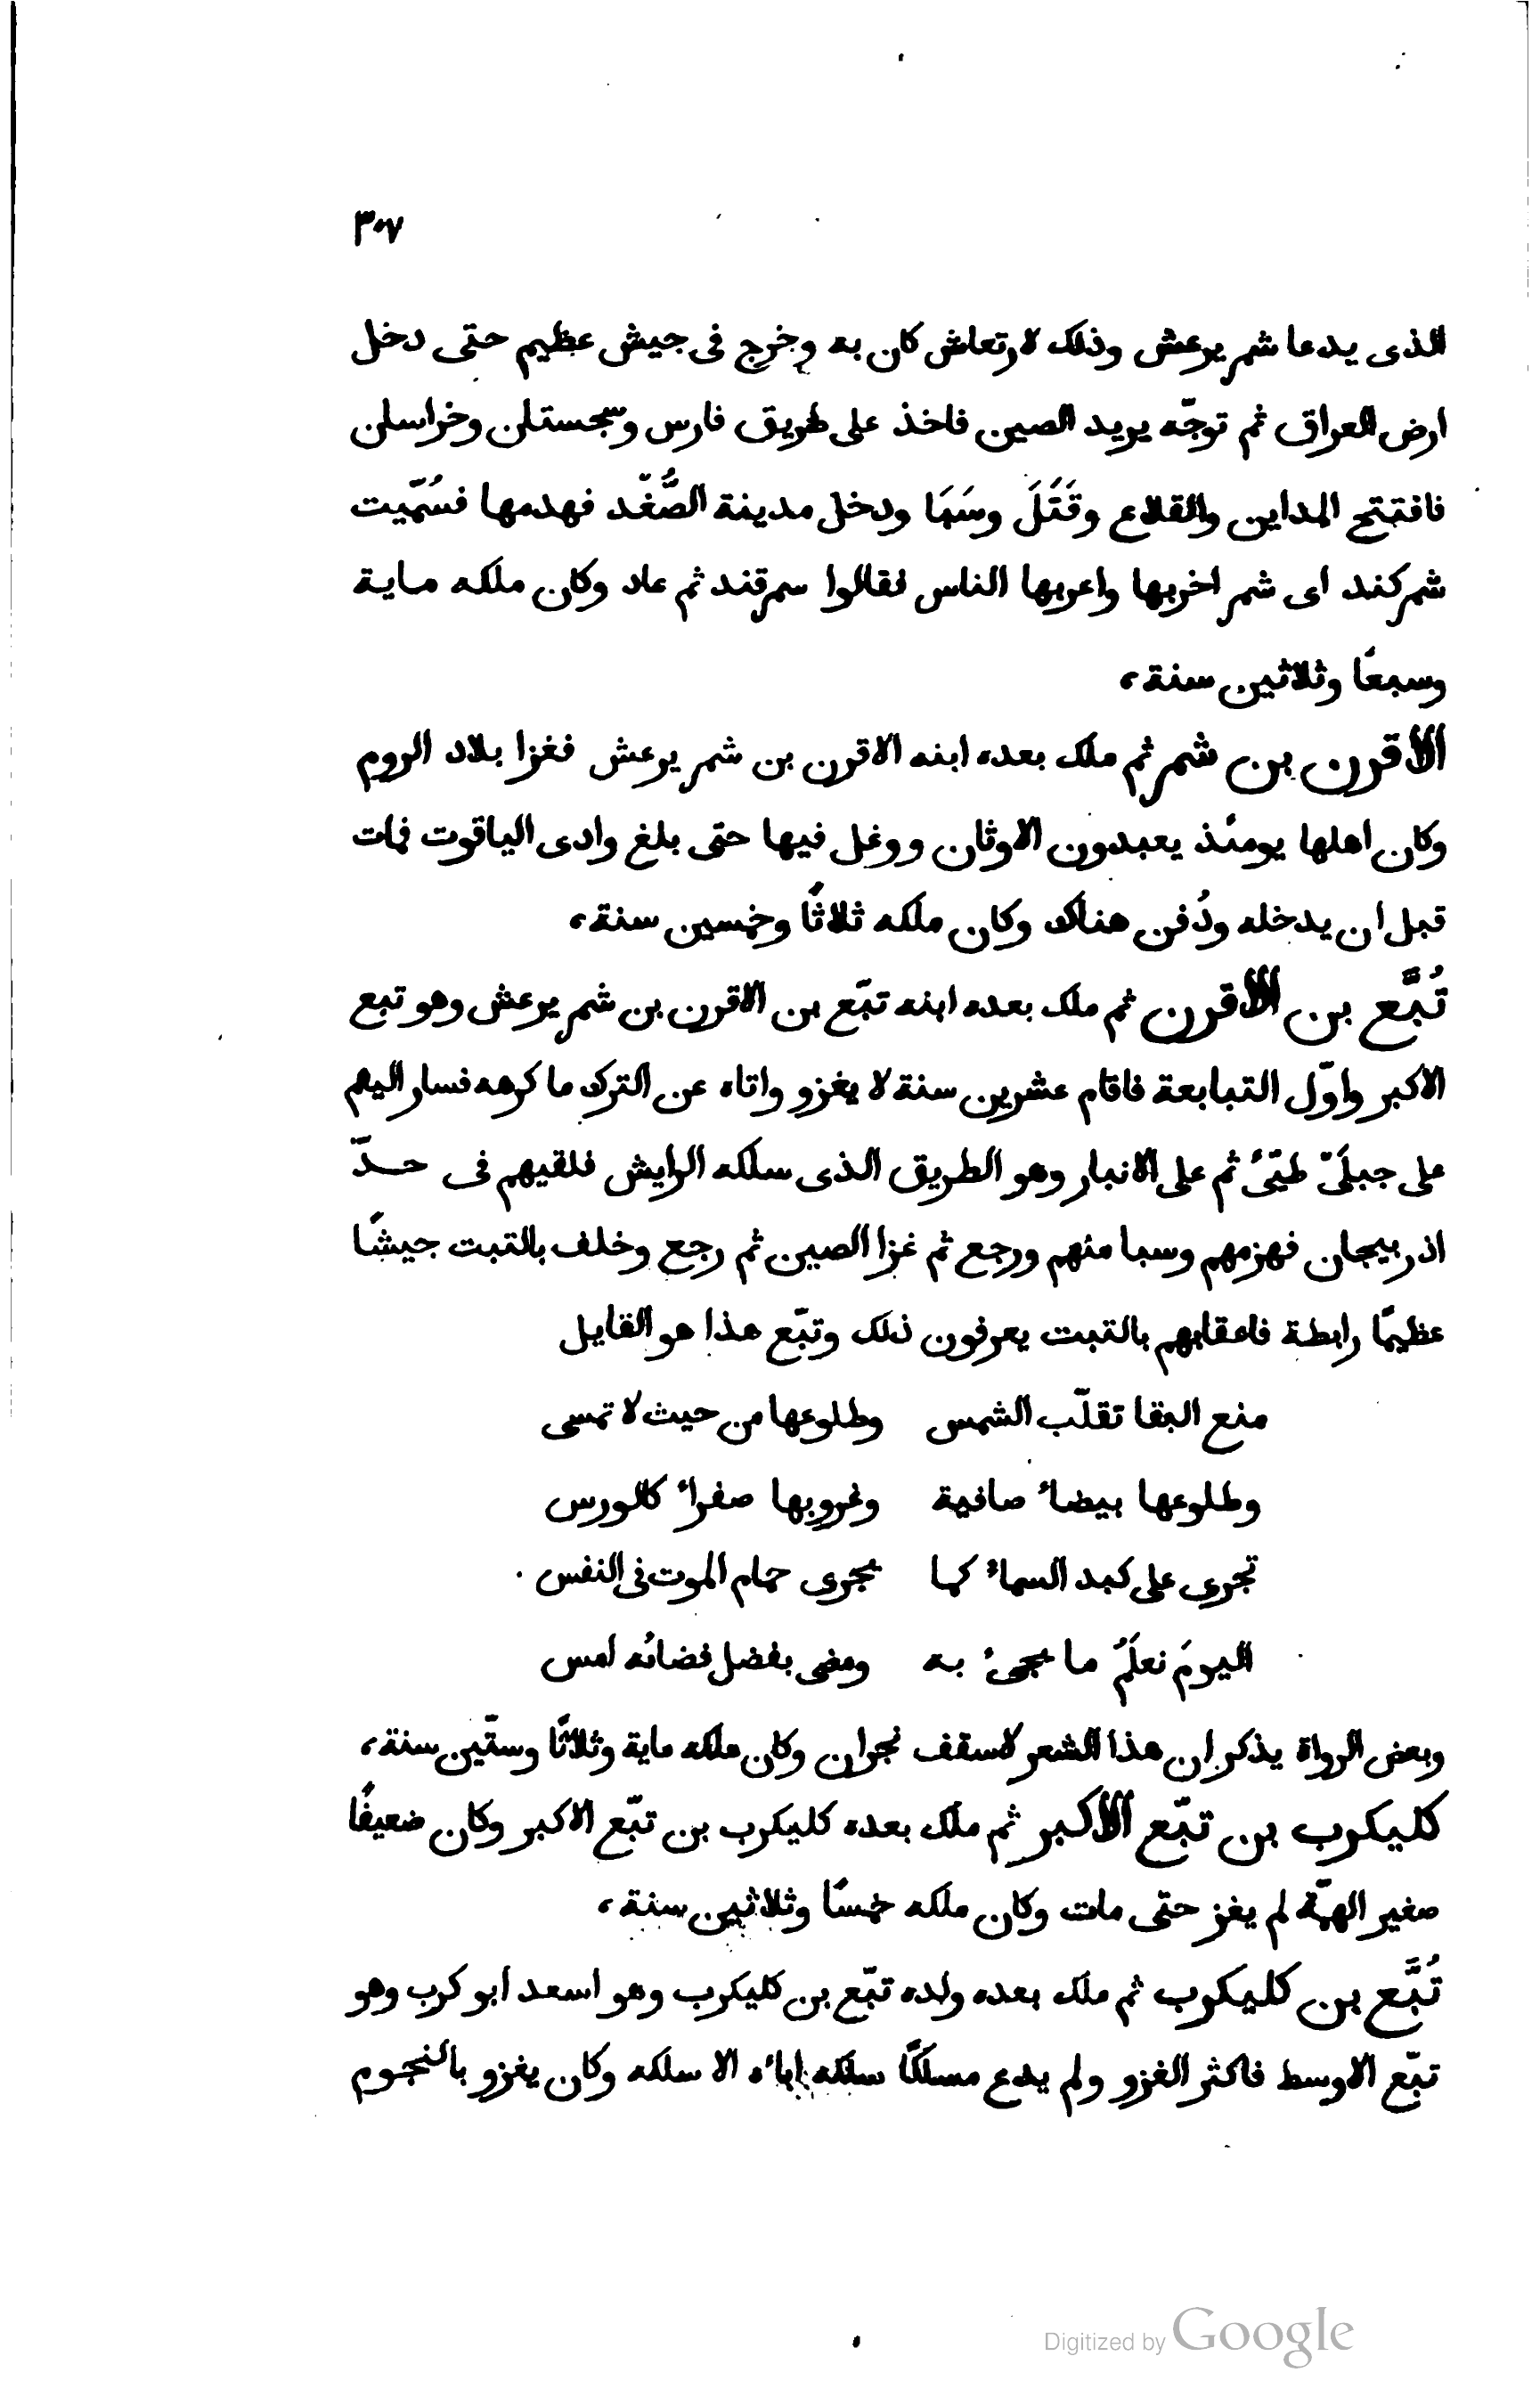 ٣٠٧
الذى يدعا شمر يرعش وذلك لارتعاش كان به وخرج فى جيش عظيم حتى دخل
ارض العراق ثم توجّه يريد الصين فاخذ على طريق فارس وسجستان وخراسان
فافتتح المداين والقلاع وقَتَلَ وسَبَا ودخل مدينة الصُّغْد فهدمها فسُمّيت
شمركند اى شمر اخربها واعربها الناس فقالوا سمرقند ثم عاد وكان ملكه ماية
وسبعًا وثلاثين سنة،
الاقرن بن شمر ثم ملك بعده ابنه الاقرن بن شمر يرعش فغزا بلاد الروم
وكان اهلها يومئذ يعبدون الاوثان ووغل فيها حتى بلغ وادى الياقوت فمات
قبل ان يدخله ودُفن هناك وكان ملكه ثلاثًا وخمسين سنة،
تُبَّع بن الاقرن ثم ملك بعده ابنه تبّع بن الاقرن بن شمر يرعش وهو تبع
الاكبر واوّل التبابعة فاقام عشرين سنة لا يغزو واتاه عن الترك ما كرهه فسار اليهم
على جبلَىّ طيّئ ثم على الانبار وهو الطريق الذى سلكه الرايش فلقيهم فى حدّ
اذربيجان فهزمهم وسبا منهم ورجع ثم غزا الصين ثم رجع وخلف بالتبت جيشًا
عظيمًا رابطة فاعقابهم بالتبت يعرفون ذلك وتبّع هذا هو القايل
منع البقا تقلّب الشمس وطلوعها من حيث لا تمسى
وطلوعها بيضاء صافية وغروبها صفراء كالورس
تجرى على كبد السماء كما يجرى حمام الموت فى النفس
اليومَ نعلَمُ ما يجىء به ومضى بفضل قضائه امس
وبعض الرواة يذكر ان هذا الشعر لاسقف نجران وكان ملكه ماية وثلاثًا وستّين سنة،
كليكرب بن تبّع الاكبر ثم ملك بعده كليكرب بن تبّع الاكبر وكان ضعيفًا
صغير الهمّة لم يغز حتّى مات وكان ملكه خمسًا وثلاثين سنة،
تُبَّع بن كليكرب ثم ملك بعده ولده تبّع بن كليكرب وهو اسعد ابو كرب وهو
تبّع الاوسط فاكثر الغزو ولم يدع مسلكًا سلكه اباءه الا سلكه وكان يغزو بالنجوم
Digitized by Google